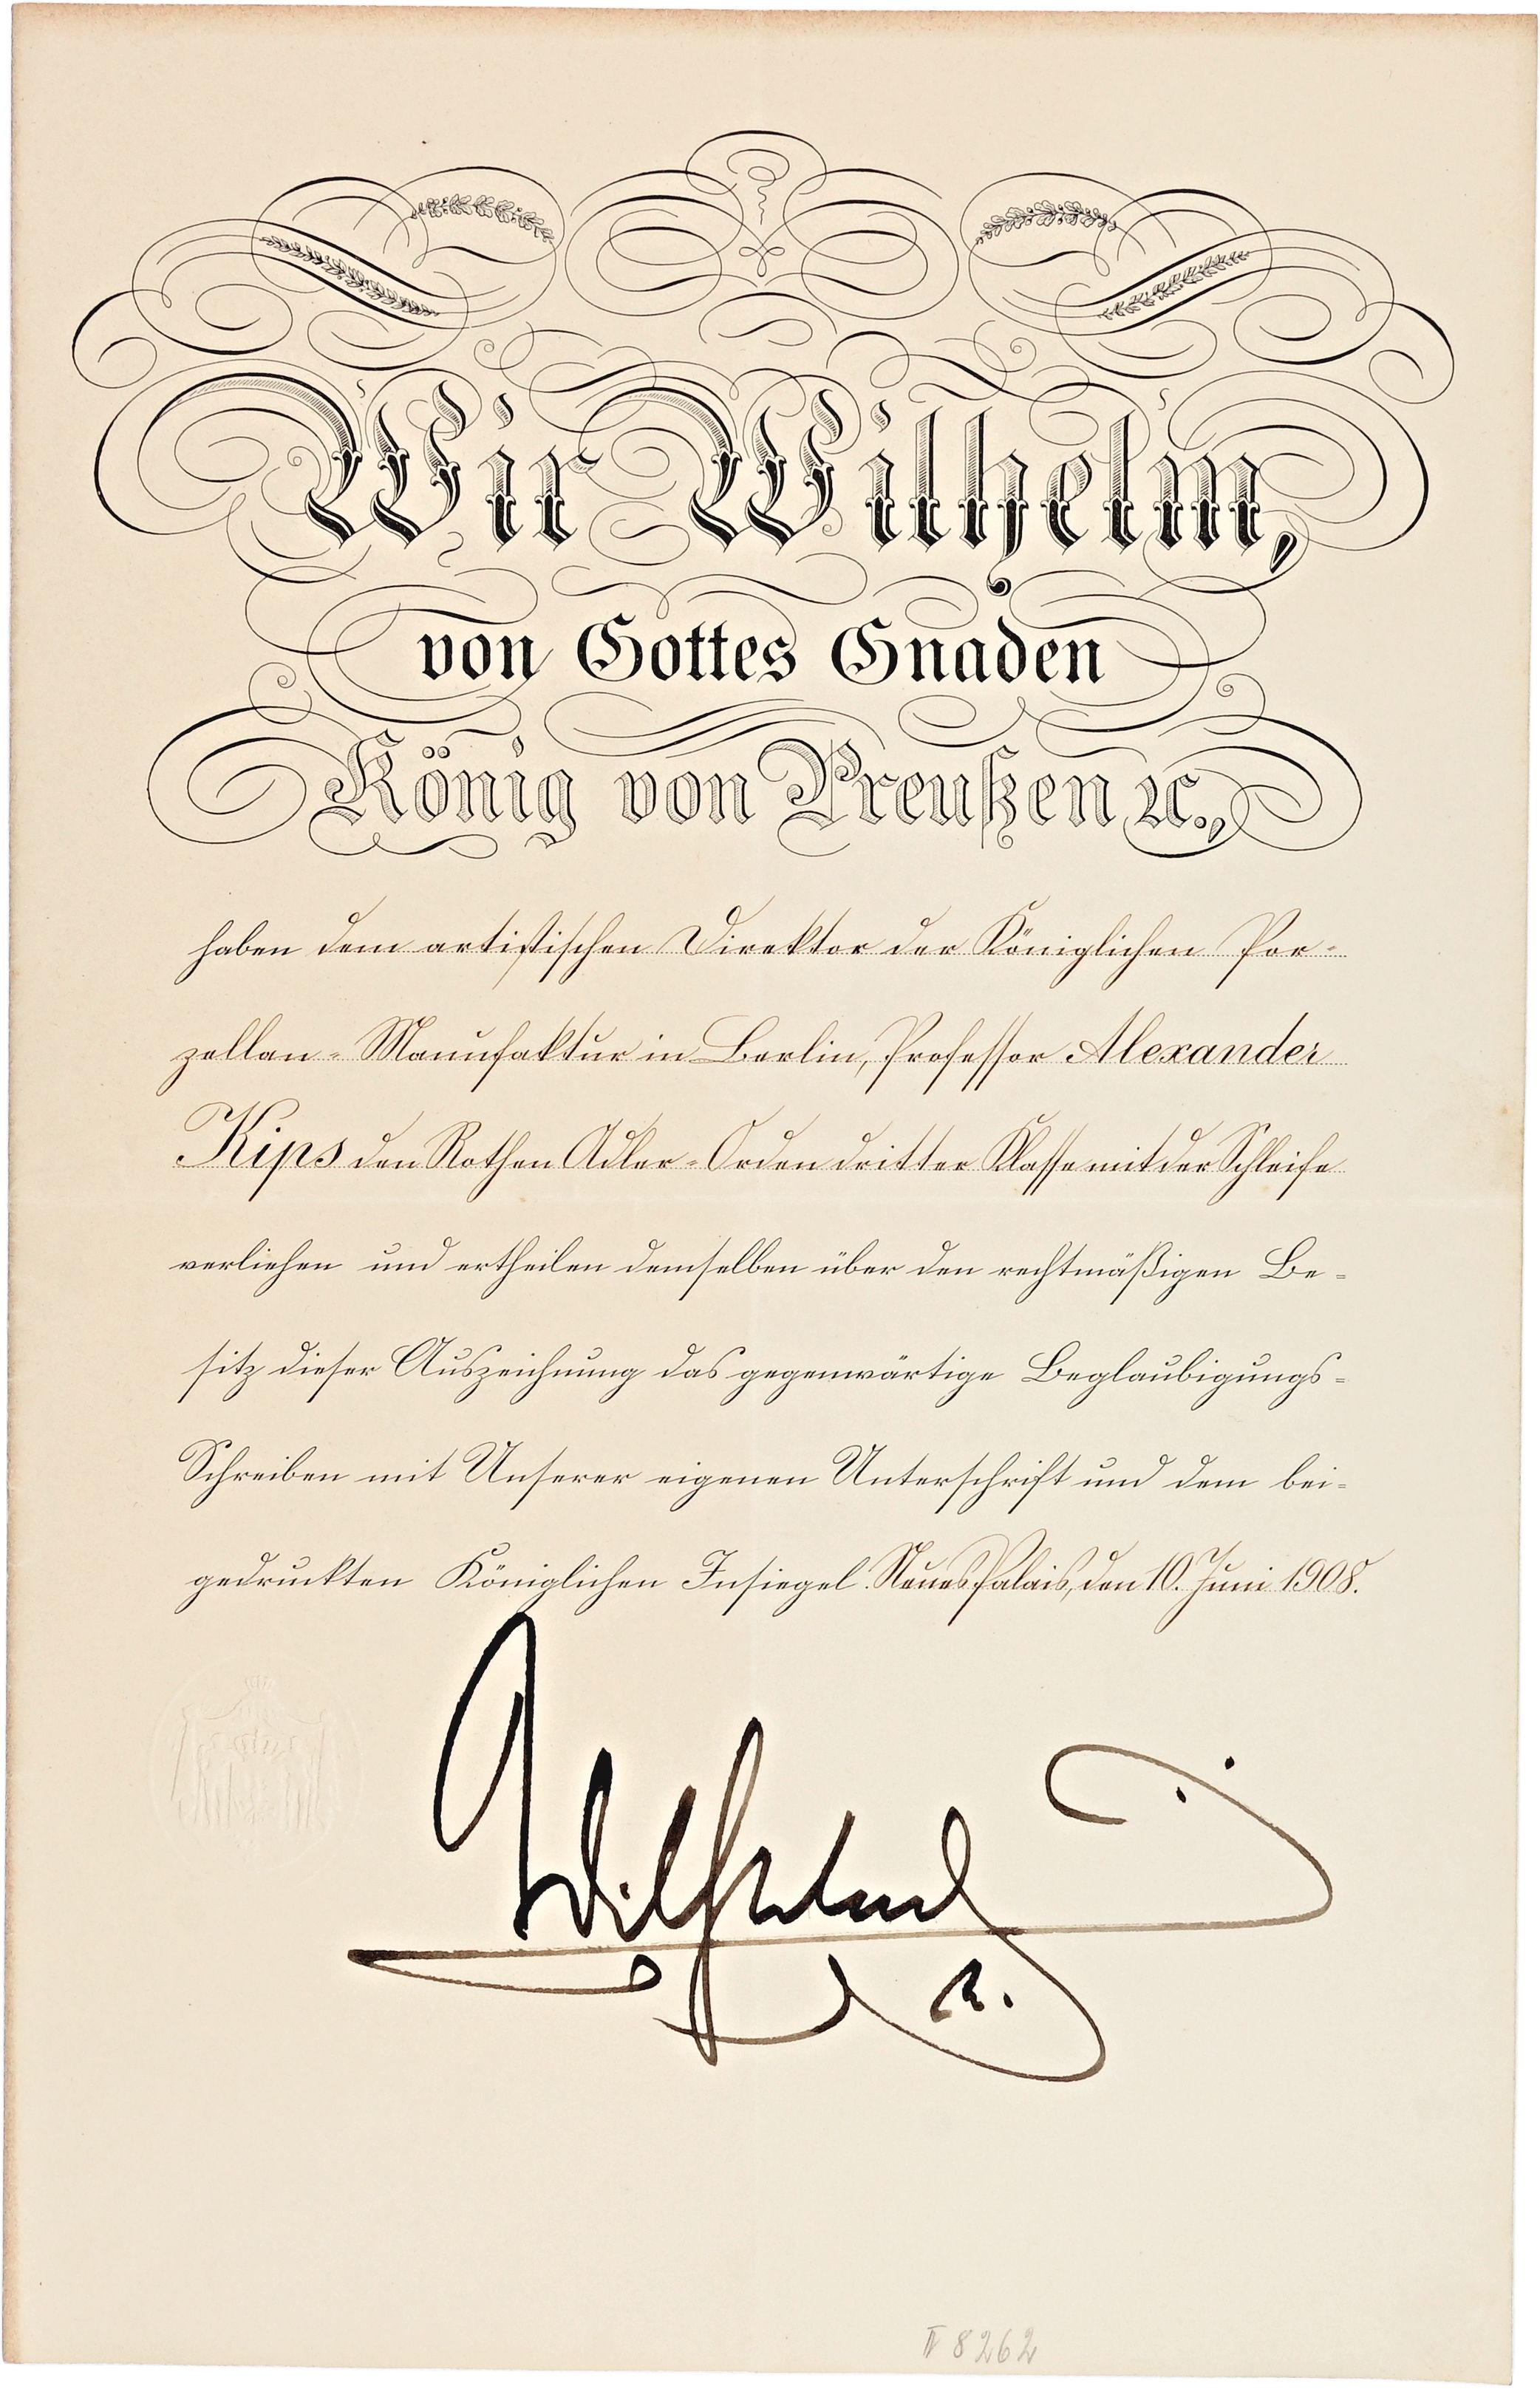 Wir Wilhelm,
von Gottes Gnaden
König von Preußen ꝛc.,
haben dem artistischen Direktor der Königlichen Por-
zellan-Manufaktur in Berlin, Professor Alexander
Kips den Rothen Adler-Orden dritter Klasse mit der Schleife
verliehen und ertheilen demselben über den rechtmäßigen Be-
sitz dieser Auszeichnung das gegenwärtige Beglaubigungs-
Schreiben mit Unserer eigenen Unterschrift und dem bei-
gedruckten Königlichen Insiegel. Neues Palais, den 10. Juni 1908.
Wilhelm
R.
II 8262